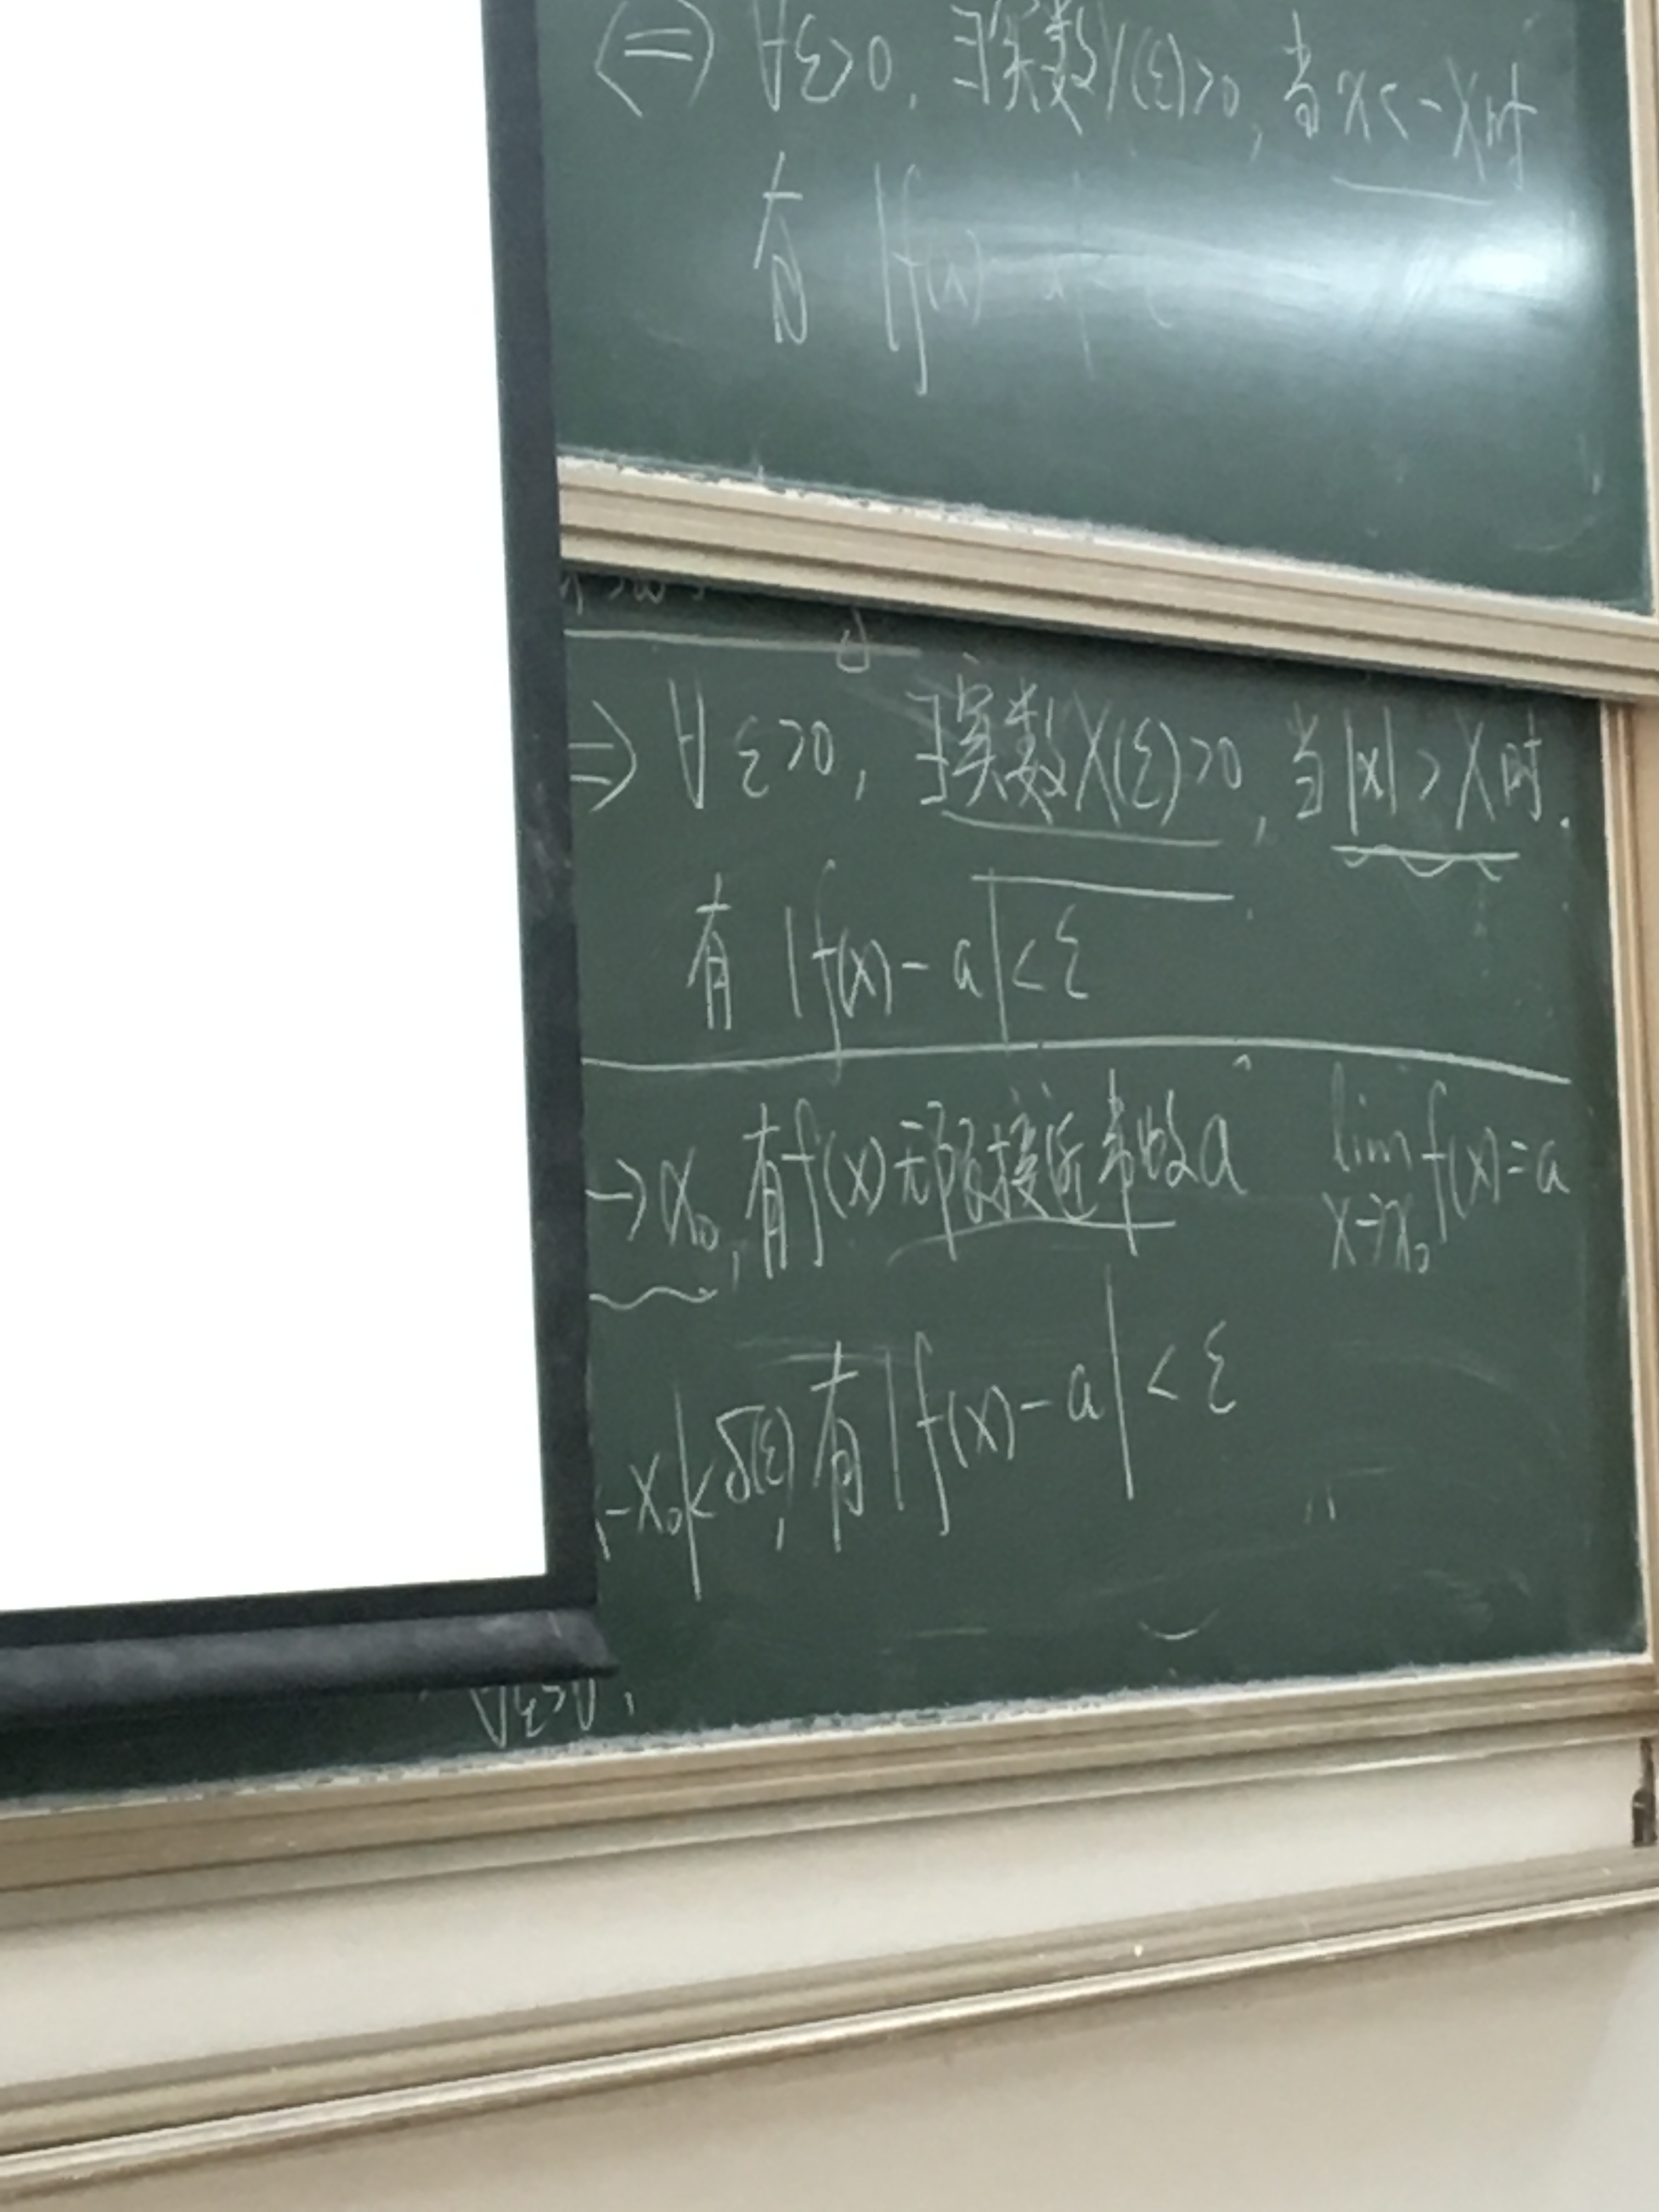 (=) ∀ε>0, ∃实数X(ε)>0, 当x<-X时
有 |f(x) a|
⇒ ∀ ε>0, ∃实数X(ε)>0, 当|x|>X时.
有 |f(x)-a|<ε
→x₀, 有f(x)无限接近常数a lim f(x)=a
x→x₀
-x₀|<δ(ε), 有|f(x)-a|<ε
∀ε>0,